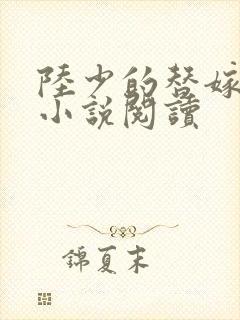 陸少的替嫁
小說閱讀
錦夏末